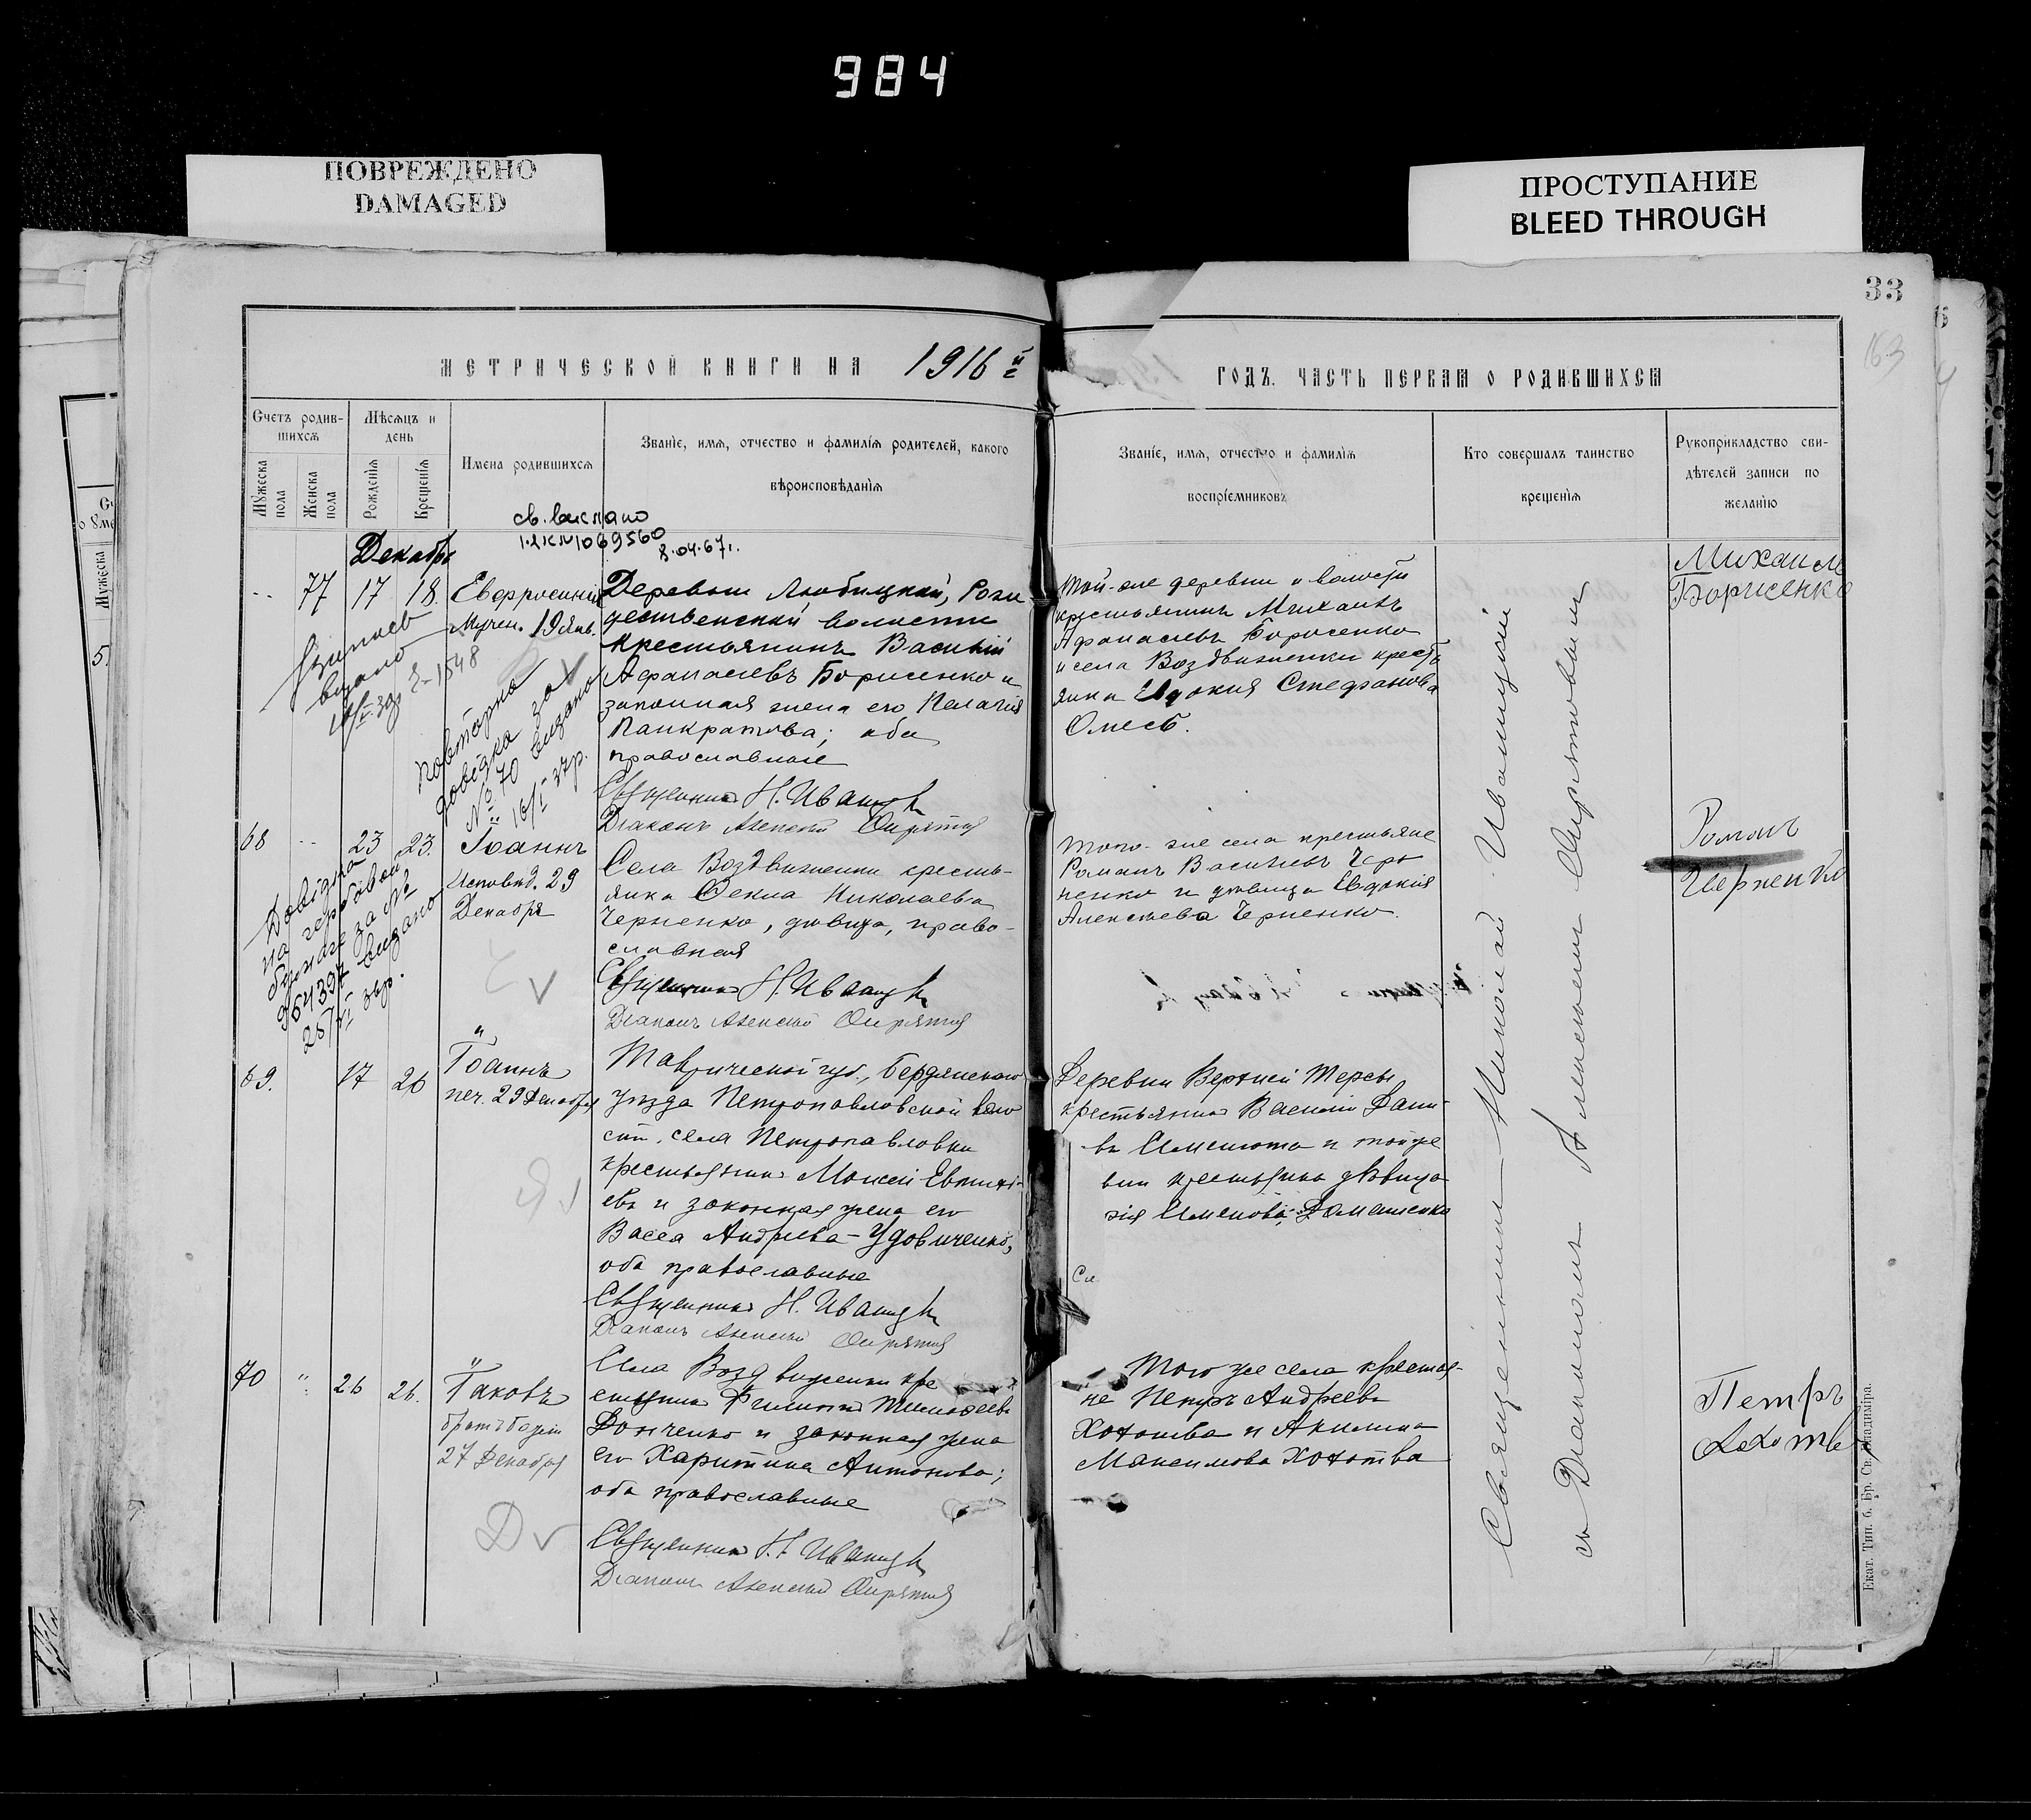 984
ПОВРЕЖДЕНО
DAMAGED
ПРОСТУПАНИЕ
BLEED THROUGH
33
163
МЕТРИЧЕСКОЙ КНИГИ НА 1916 й г
ГОДЪ. ЧАСТЬ ПЕРВАЯ О РОДИВШИХСЯ
Счетъ родив-
шихся
Мужеска пола
Женска пола
Мѣсяцъ и
день
Рожденія
Крещенія
Имена родившихся
Званіе, имя, отчество и фамилія родителей, какого
вѣроисповѣданія
Званіе, имя, отчество и фамилія
воспріемниковъ
Кто совершалъ таинство
крещенія
Рукоприкладство сви-
дѣтелей записи по
желанію
1069560
8.04.67г.
Декабрь
77 17 18. Евфросинія
Мучен. 19 Янв.
Деревни Любицкой, Рож
дественской волости
крестьянинъ Василій
Афанасіевъ Борисенко и
законная жена его Пелагія
Панкратова; оба
православные
Священникъ Н. Иваницкій
Діаконъ Алексій
Той-же деревни и волости
крестьянинъ Михаилъ
Афанасіевъ Борисенко
и села Воздвиженки кресть
янка Евдокия Стефанова
Михаил
Борисенко
видано
повторна
довідка за
№ 70 видано
16/I 37р.
68 23 23. Іоаннъ
Исповѣд. 29
Декабря
Села Воздвиженки кресть-
янка Ѳекла Николаева
Черненко, дѣвица, право-
славная
Священникъ Н. Иваницкій
Діаконъ Алексій
Того-же села крестьяне
Романъ Васильевъ Чер
ненко и дѣвица Евдокія
Алексѣева Черненко.
Романъ
Черненко
Довідка
на гербовой
бумаге за №
видано
69. 17 26 Іоаннъ
29 Декабря
Таврической губ., Бердянскаго
уѣзда Петропавловской воло
сти, села Петропавловки
крестьянинъ Моисей
евъ и законная жена его
Васса Андреева-Удовиченко,
оба православные
Священникъ Н. Иваницкій
Діаконъ Алексій
Деревни Верхней Терсы
крестьянинъ Василій Дани
въ и той же
вни крестьянка дѣвица
Домашенко
Сл
70 " 26 26. Іаковъ
братъ Божій
27 Декабря
Села Воздвиженки кре
стьянинъ Филиппъ Тимоѳеевъ
Донченко и законная жена
его Харитина Антонова;
оба православные
Священникъ Н. Иваницкій
Діаконъ Алексій
Того же села крестья-
не Петръ Андреевъ
Хохотва и Акилина
Максимова Хохотва
Петръ
Хохотва
Священникъ Николай Иваницкій
съ Діакономъ Алексіемъ
Екат. Тип. б. Бр. Св. Владиміра.